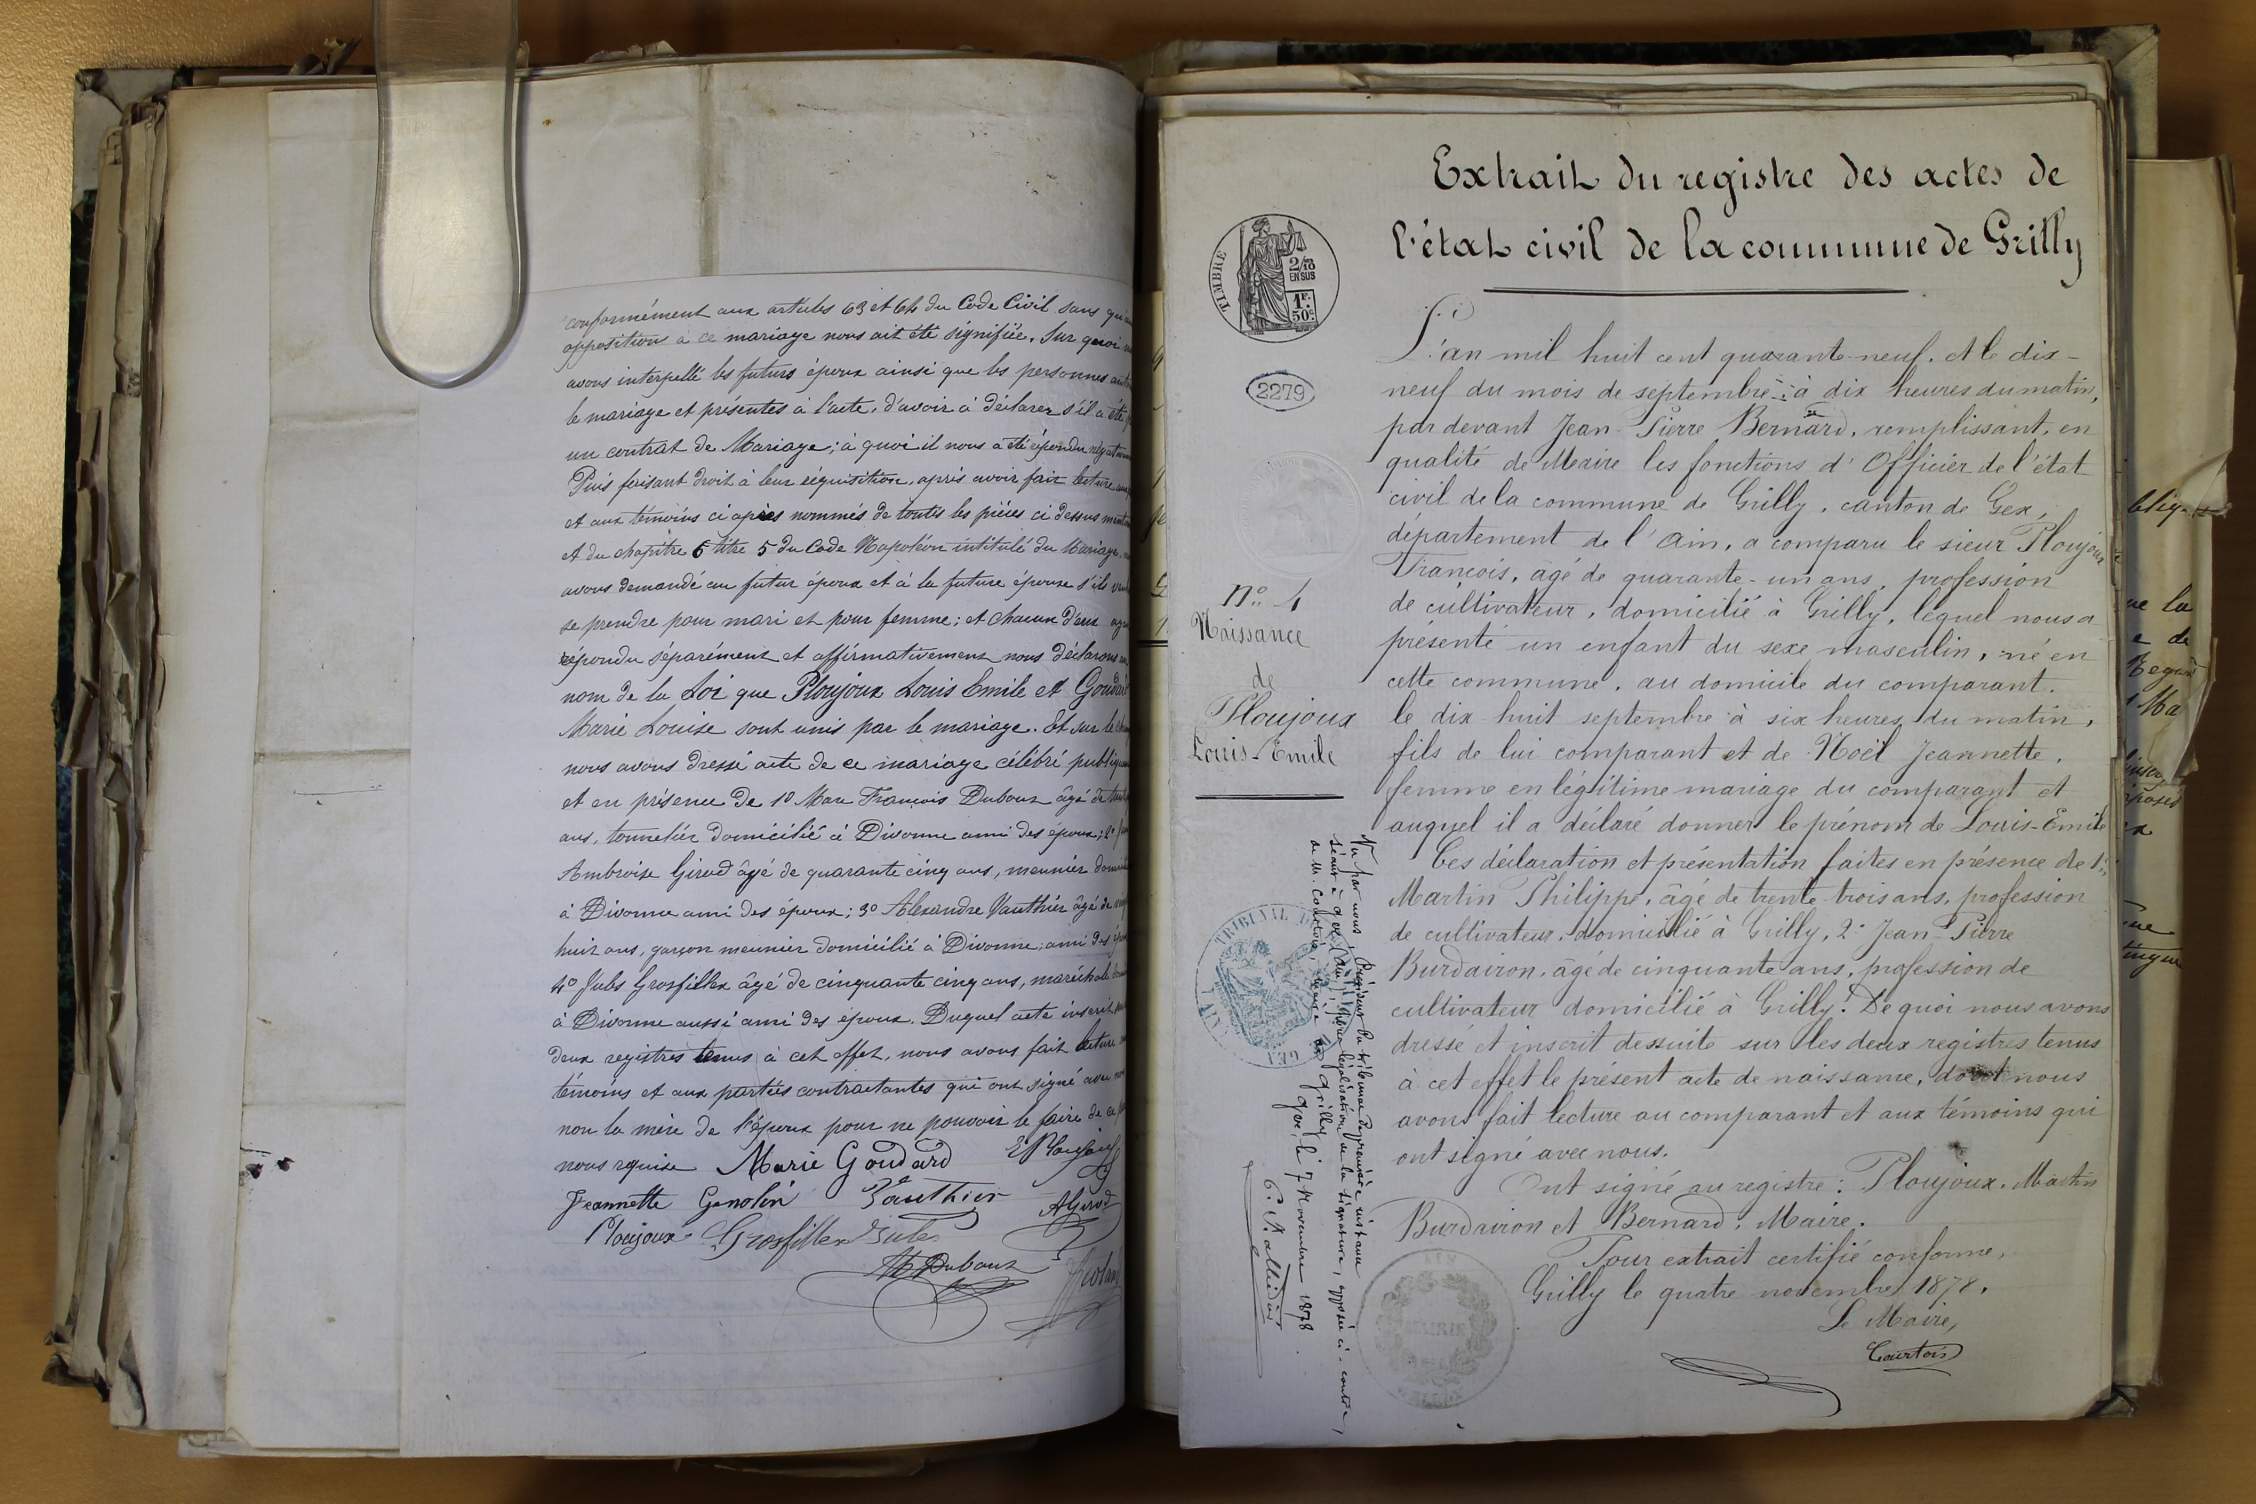 conformément aux articles 63 et 64 du Code Civil sans qu'
opposition à ce mariage nous ait été signifiée. Sur quoi
avons interpellé les futurs époux ainsi que les personnes
le mariage et présentes à l'acte, d'avoir à déclarer s'il a été
un contrat de Mariage; à quoi il nous a été répondu
Puis faisant droit à leur réquisition, après avoir fait lecture
et aux témoins ci après nommés de toutes les pièces ci dessus
et du chapitre 6 titre 5 du Code Napoléon intitulé du Mariage,
avons demandé au futur époux et à la future épouse s'ils
se prendre pour mari et pour femme; et chacun d'eux
répondu séparément et affirmativement nous déclarons
nom de la Loi que Ploujoux Louis Emile et
Marie Louise sont unis par le mariage. Et sur le
nous avons dressé acte de ce mariage célébré
et en présence de 1º Marc François Duboux âgé de
ans, tonnelier domicilié à Divonne ami des époux; 2º
Ambroise Girod âgé de quarante cinq ans, meunier
à Divonne ami des époux; 3º Alexandre Vauthier âgé de
huit ans, garçon meunier domicilié à Divonne, ami des
4º Jules Grosfillex âgé de cinquante cinq ans, maréchal
à Divonne aussi ami des époux. Duquel acte inscrit
deux registres tenus à cet effet, nous avons fait lecture
témoins et aux parties contractantes qui ont signé avec
non la mère de l'époux pour ne pouvoir le faire de ce
nous requise Marie Goudard
Jeannette Vauthier AGirod
Ploujoux Grosfillex Jules
Duboux
Extrait du registre des actes de
l'état civil de la commune de Grilly
TIMBRE
2/10
EN SUS
1F.
50c
2279
L'an mil huit cent quarante-neuf, et le dix-
neuf du mois de septembre à dix heures du matin,
par devant Jean-Pierre Bernard, remplissant, en
qualité de Maire les fonctions d'Officier de l'état
civil de la commune de Grilly, canton de Gex,
département de l'Ain, a comparu le sieur Ploujoux
François, âgé de quarante-un ans, profession
de cultivateur, domicilié à Grilly, lequel nous a
présenté un enfant du sexe masculin, né en
cette commune, au domicile du comparant.
le dix-huit septembre à six heures du matin,
fils de lui comparant et de Noël Jeannette,
femme en légitime mariage du comparant et
auquel il a déclaré donner le prénom de Louis-Emile
Ces déclaration et présentation faites en présence de 1º
Martin Philippe, âgé de trente-trois ans, profession
de cultivateur, domicilié à Grilly, 2º Jean-Pierre
Burdairon, âgé de cinquante ans, profession de
cultivateur domicilié à Grilly. De quoi nous avons
dressé et inscrit dessuite sur les deux registres tenus
à cet effet le présent acte de naissance, dont nous
avons fait lecture au comparant et aux témoins qui
ont signé avec nous.
Ont signé au registre: Ploujoux. Martin
Burdairon et Bernard, Maire.
Pour extrait certifié conforme,
Grilly le quatre novembre 1878.
Le Maire,
Courtois
Naissance
de
Ploujoux
Louis-Emile
TRIBUNAL
MAIRIE
Vu par nous Président du tribunal de première instance
séant à gex (Ain) pour légalisation de la signature, apposée ci-contre,
de M. Courtois, maire de grilly
gex, le 7 Novembre 1878